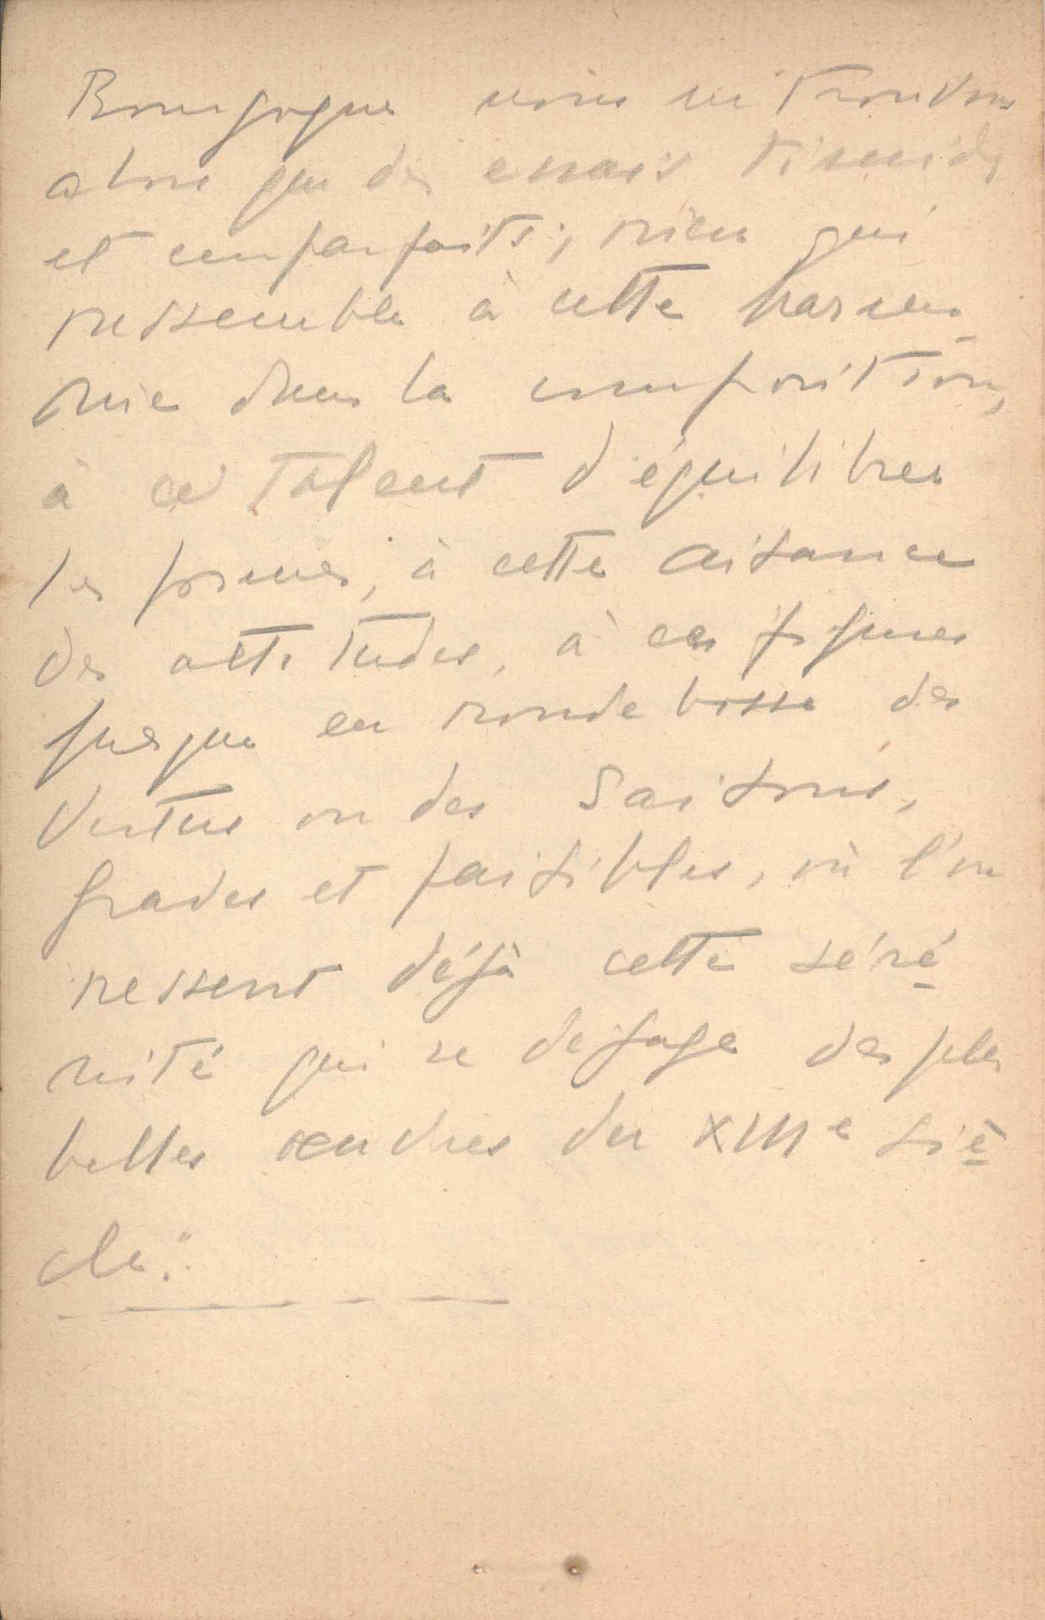 Bourgogne nous ne trouvons
alors que des essais timides
et imparfaits ; rien qui
ressemble à cette harmo-
nie dans la composition,
à ce talent d'équilibrer
les formes, à cette aisance
des attitudes, à ces figures
presque en ronde bosse des
Vertus ou des Saisons,
graves et paisibles, où l'on
ressent déjà cette séré-
nité qui se dégage des plus
belles œuvres du XIIIe siè-
cle."